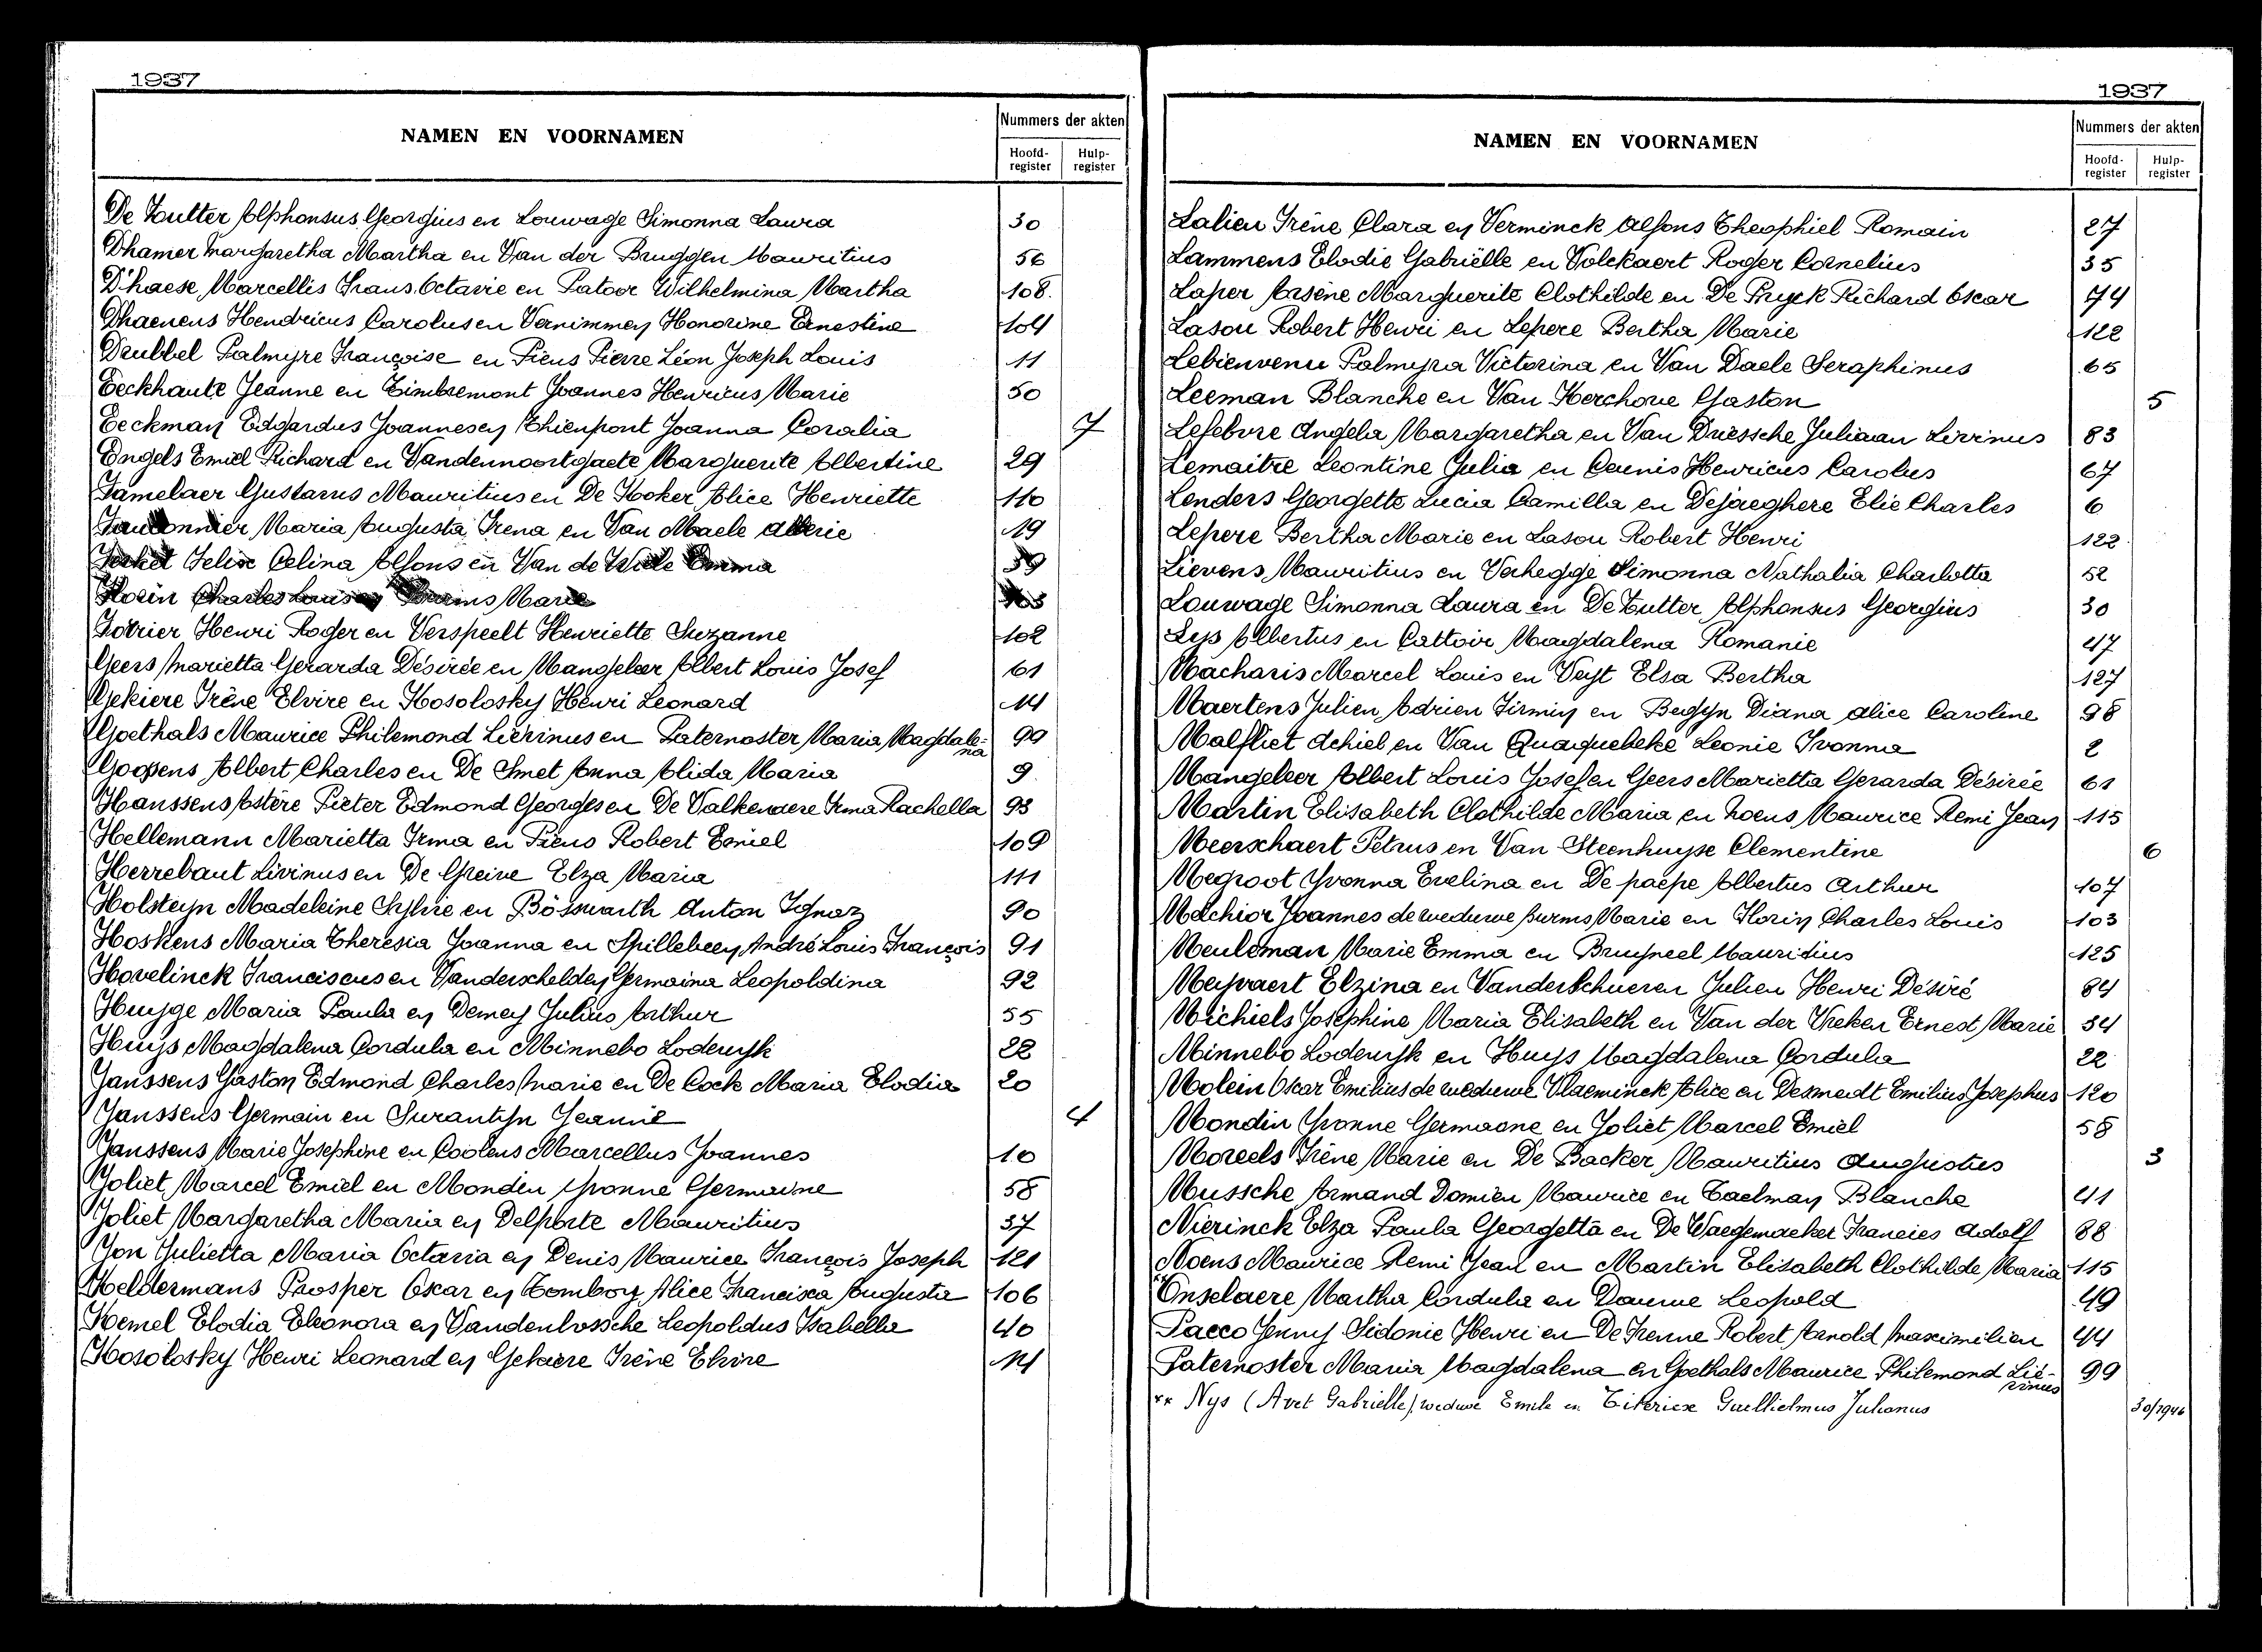 1937
NAMEN EN VOORNAMEN
Nummers der akten
Hoofd-register Hulp-register
De Zutter Alphonsus Georgius en Louwage Simonna Laura 30
Dhamer Margaretha Martha en Van der Bruggen Mauritius 56
D'haese Marcellis Frans. Octavie en Patoor Wilhelmina Martha 108.
Dhaenens Hendricus Carolus en Vernimmen Honorine Ernestine 104
Drubbel Palmyre Françoise en Piens Pierre Léon Joseph Louis 11
Eeckhaute Jeanne en Timbremont Joannes Henricus Marie 50
Eeckman Edgardus Joannes en Thienpont Joanna Coralia 7
Engels Emiel Richard en Vandennoortgaete Marguerite Albertine 29
Famelaer Gustavus Mauritius en De Kooker Alice Henriette 110
Fauconnier Maria Augusta Irena en Van Maele Alberic 19
Felix Celina Alfons en Van de Wiele Emma 59
Florin Charles Louis en Burms Marie
Fovrier Henri Roger en Verspeelt Henriette Suzanne 102
Geers Marietta Gerarda Désirée en Mangeleer Albert Louis Josef 61
Gekiere Irène Elvire en Kosolosky Henri Leonard 14
Goethals Maurice Philemond Liévinus en Paternoster Maria Magdale-
na 99
Goossens Albert Charles en De Smet Anna Alida Maria 9
Hanssens Astère Pieter Edmond Georges en De Valkeneere Irma Rachella 93
Hellemann Marietta Irma en Piens Robert Emiel 109
Herrebaut Livinus en De Greive Elza Maria 111
Holsteyn Madeleine Sylvie en Bösswarth Anton Ignaz 90
Hoskens Maria Theresia Joanna en Spillebeen André Louis François 91
Hovelinck Franciscus en Vanderschelden Germaina Leopoldina 92
Huyge Maria Paula en Demey Julius Arthur 55
Huys Magdalena Cordula en Minnebo Lodewyk 22
Janssens Gaston Edmond Charles Marie en De Cock Maria Elodia 20
Janssens Germain en Surantyn Jeanne 4
Janssens Marie Josephine en Coolens Marcellus Joannes 10
Joliet Marcel Emiel en Mondin Yvonne Germaine 58
Joliet Margaretha Maria en Delporte Mauritius 37
Jon Julietta Maria Octavia en Denis Maurice François Joseph 121
Keldermans Prosper Oscar en Tomboy Alice Francisca Augusta 106
Kemel Elodia Eleonora en Vandenbossche Leopoldus Isabella 40
Kosolosky Henri Leonard en Gekiere Irène Elvire 14
1937
NAMEN EN VOORNAMEN
Nummers der akten
Hoofd-register Hulp-register
Lalieu Irène Clara en Verminck Alfons Theophiel Romain 27
Lammens Elodie Gabriëlle en Volckaert Roger Cornelius 35
Laper Arsène Marguerite Clothilde en De Pryck Richard Oscar 74
Lasou Robert Henri en Lepere Bertha Marie 122
Lebienvenu Palmyra Victorina en Van Daele Seraphinus 65
Leeman Blanche en Van Kerchove Gaston 5
Lefebvre Angela Margaretha en Van Driessche Juliaan Livinus 83
Lemaitre Leontine Julia en Ceunis Henricus Carolus 67
Lenders Georgette Lucia Camilla en Dejaeghere Elie Charles 6
Lepere Bertha Marie en Lasou Robert Henri 122
Lievens Mauritius en Verhegge Simonna Nathalia Charlotta 52
Louwage Simonna Laura en De Zutter Alphonsus Georgius 30
Lys Albertus en Cattoir Magdalena Romanie 47
Macharis Marcel Louis en Veyt Elsa Bertha 127
Maertens Julien Adrien Firmin en Begyn Diana Alice Caroline 98
Malfliet Achiel en Van Quaquebeke Leonie Ivonna 2
Mangeleer Albert Louis Josef en Geers Marietta Gerarda Désirée 61
Martin Elisabeth Clothilde Maria en Noens Maurice Remi Jean 115
Meerschaert Petrus en Van Steenhuyse Clementine 6
Megroot Yvonna Evelina en De paepe Albertus Arthur 107
Melchior Joannes de weduwe Burms Marie en Florin Charles Louis 103
Meuleman Marie Emma en Bruyneel Mauritius 125
Meyvaert Elzina en Vanderschueren Julien Henri Désiré 84
Michiels Josephine Maria Elisabeth en Van der Vreken Ernest Marie 34
Minnebo Lodewyk en Huys Magdalena Cordula 22
Molein Oscar Emilius de weduwe Vlaeminck Alice en Desmedt Emilius Josephus 120
Mondin Yvonne Germaine en Joliet Marcel Emiel 58
Moreels Irène Marie en De Backer Mauritius Augustus 3
Mussche Armand Domien Maurice en Taelman Blanche 41
Nierinck Elza Paula Georgetta en De Waegemaeker Francies Adolf 88
Noens Maurice Remi Jean en Martin Elisabeth Clothilde Maria 115
Onselaere Martha Cordula en Dauwe Leopold 49
Pacco Jenny Sidonie Henri en De Frenne Robert Arnold Maximilien 44
Paternoster Maria Magdalena en Goethals Maurice Philemond Lié-
vinus 99
** Nys (Avet Gabrielle) weduwe Emile en Citericx Guillielmus Julianus 30/1946